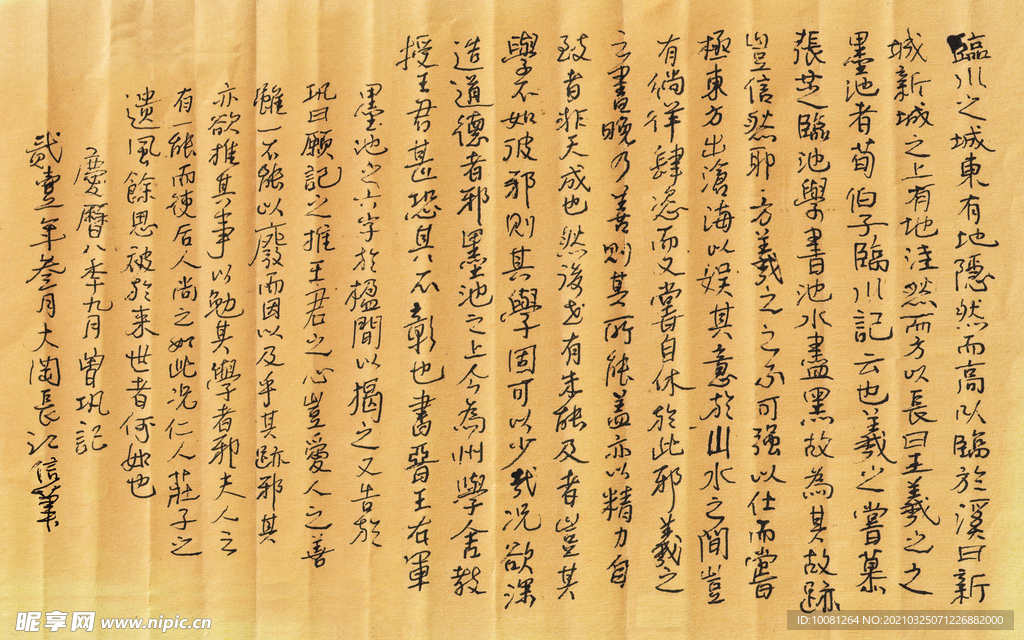 臨川之城東有地隱然而高以臨於溪曰新
城新城之上有地洼然而方以長曰王羲之之
墨池者荀伯子臨川記云也羲之嘗慕
張芝臨池學書池水盡黑故為其故跡
豈信然耶方羲之之不可强以仕而嘗
極東方出滄海以娛其意於山水之間豈
有徜徉肆恣而又嘗自休於此邪羲之
之書晚乃善則其所能蓋亦以精力自
致者非天成也然後世有未能及者豈其
學不如彼邪則其學固可以少哉况欲深
造道德者邪墨池之上今為州學舍教
授王君甚恐其不彰也書晉王右軍
墨池之六字於楹間以揭之又告於
巩曰願記之推王君之心豈愛人之善
雖一不能以廢而因以及乎其跡邪其
亦欲推其事以勉其學者邪夫人之
有一能而使后人尚之如此况仁人莊子之
遺風餘思被於来世者何如也
慶曆八年九月曾巩記
貳壹年叁月大蘭長江信筆
昵享网 www.nipic.cn
ID:10081264 NO:20210325071226882000